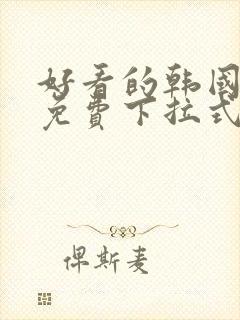 好看的韩国
免費下拉式
俾斯麦